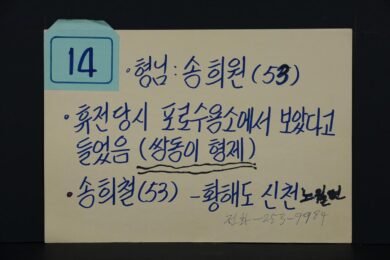 14
·형님: 송희원(53)
·휴전당시 포로수용소에서 보았다고
들었음 (쌍둥이 형제)
·송희철(53) -황해도 신천노월면
전화-253-9984